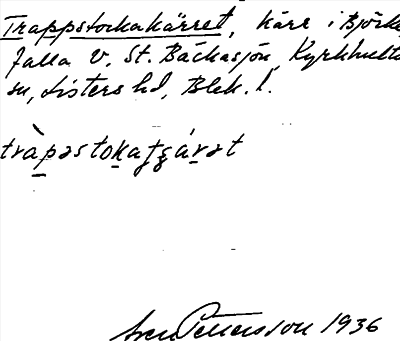 Trappstockakärret, kärr i Björke
falla v. St. Bäckasjön, Kyrkhults
sn, Listers hd, Blek. l.
tràpəstokatɕárət
Sven Pettersson 1936